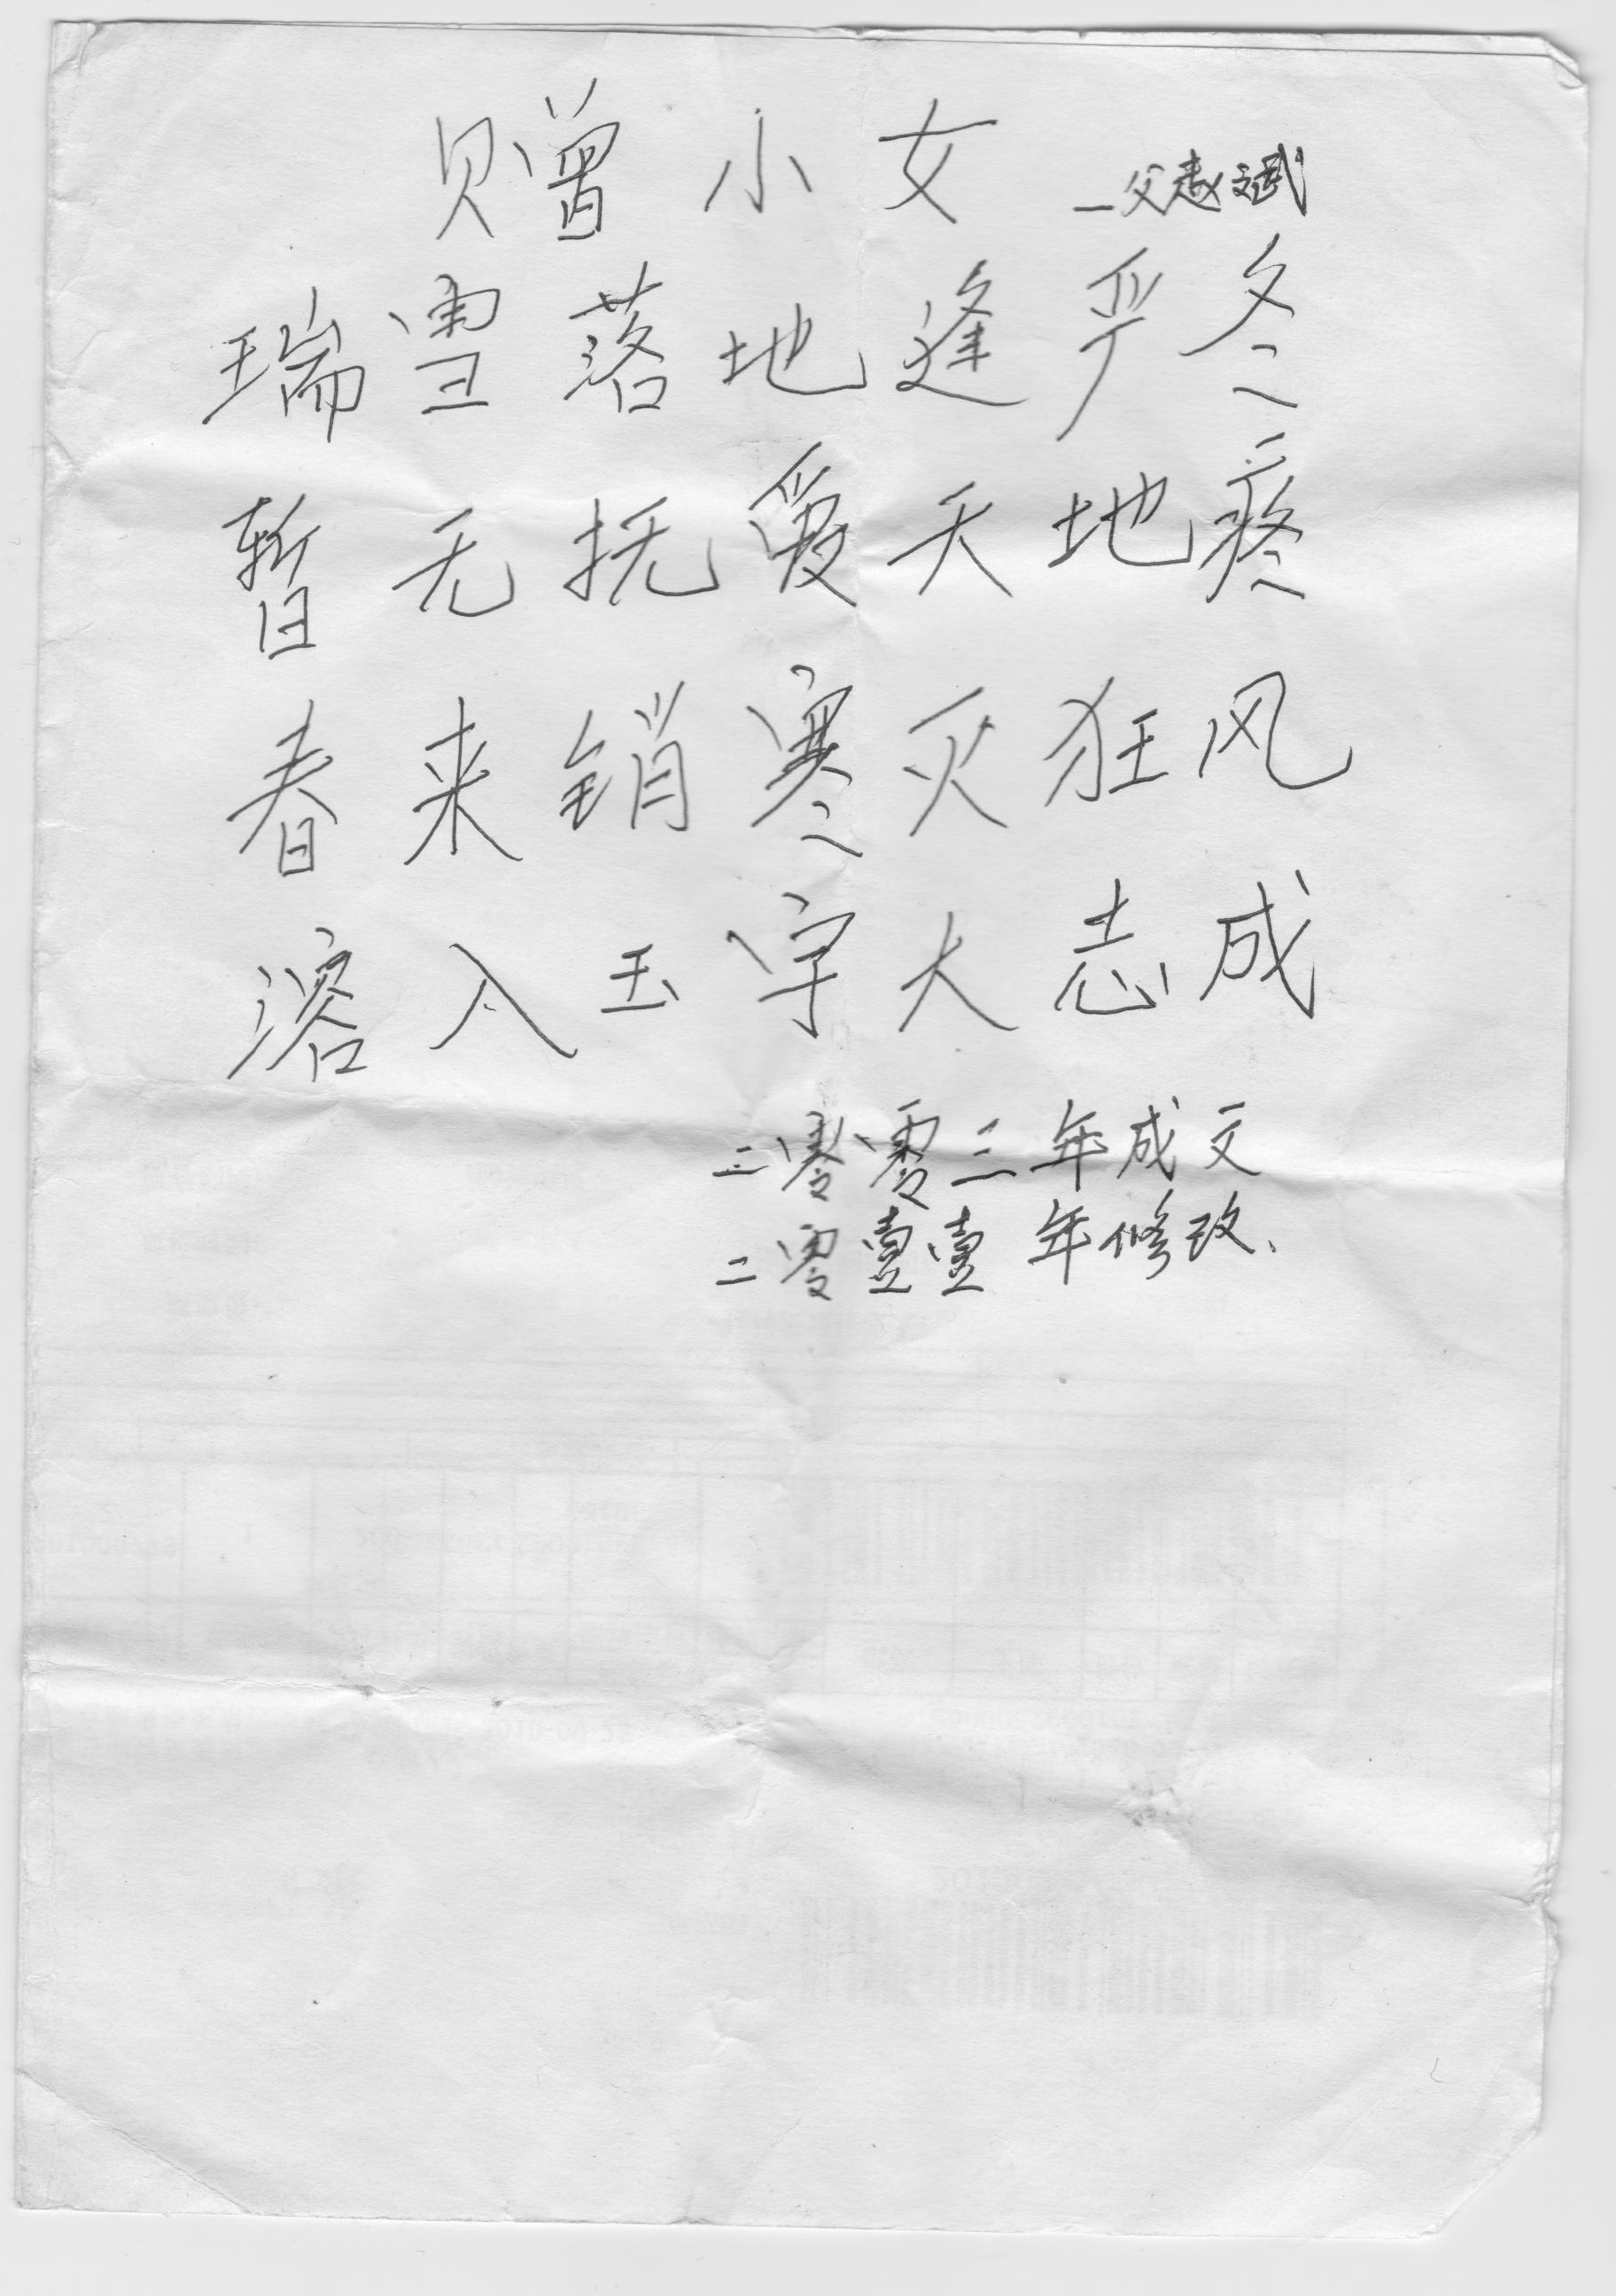 赠小女 —父赵斌
瑞雪落地逢严冬
暂无抚爱天地疼
春来销寒灭狂风
溶入玉宇大志成
二零零三年成文
二零壹壹年修改、